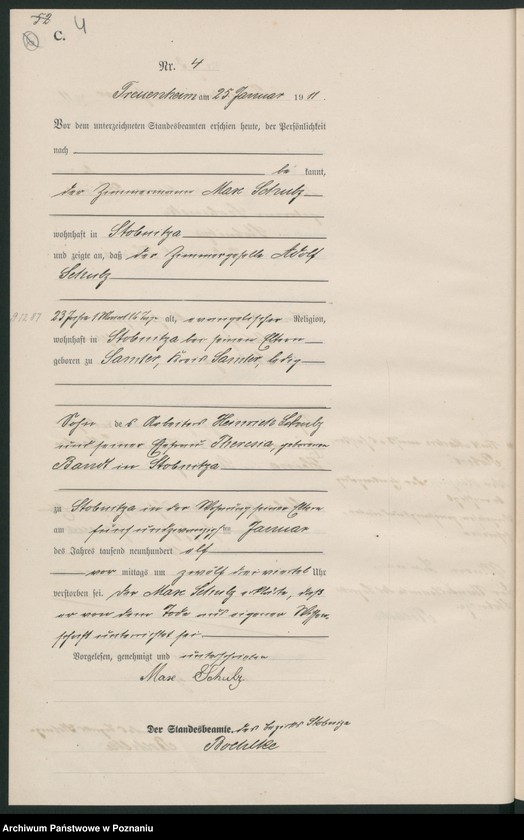 52
C. 4
4
Nr. 4
Treuenheim am 25 Januar 1911.
Vor dem unterzeichneten Standesbeamten erschien heute, der Persönlichkeit
nach
be kannt,
der Zimmermann Max Schulz
wohnhaft in Stobnitza
und zeigte an, daß der Zimmergeselle Adolf
Schulz
23 Jahre 1 Monat 16 Tage alt, evangelischer Religion,
wohnhaft in Stobnitza bei seinen Eltern
geboren zu Samter, Kreis Samter, ledig
Sohn des Arbeiters Heinrich Schulz
und seiner Ehefrau Theresia, geborene
Bandt in Stobnitza
zu Stobnitza in der Wohnung seiner Eltern
am fünfundzwanzigsten Januar
des Jahres tausend neunhundert elf
vor mittags um zwölf drei viertel Uhr
verstorben sei. Der Max Schulz erklärte, daß
er von dem Tode aus eigener Wissen-
schaft unterrichtet sei
Vorgelesen, genehmigt und unterschrieben
Max Schulz
Der Standesbeamte. des Bezirks Stobnitza
Archiwum Państwowe w Poznaniu